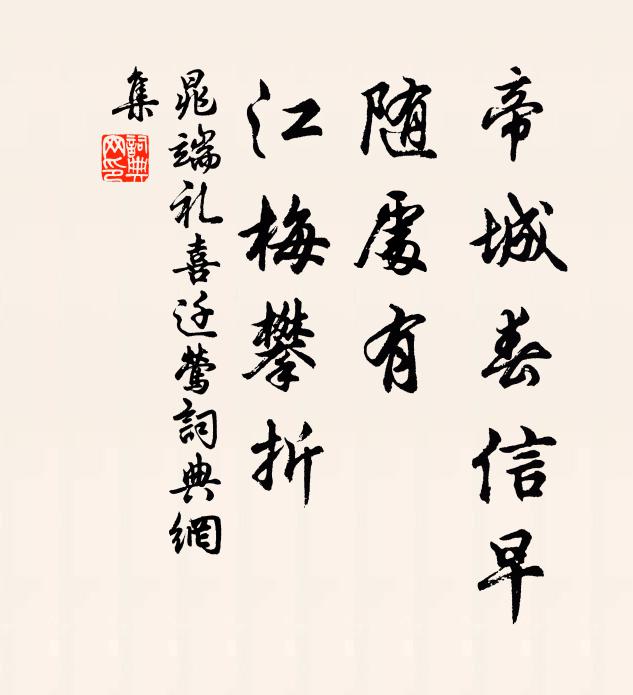 帝城春信早
随處有
江梅攀折
晁端礼喜迁莺詞典網
集
詞典
网印